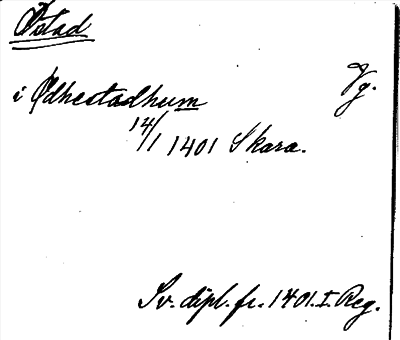 Østad
Vg.
i Ødhestadhum
14/1 1401 Skara.
Sv. dipl. fr. 1401. I. Reg.